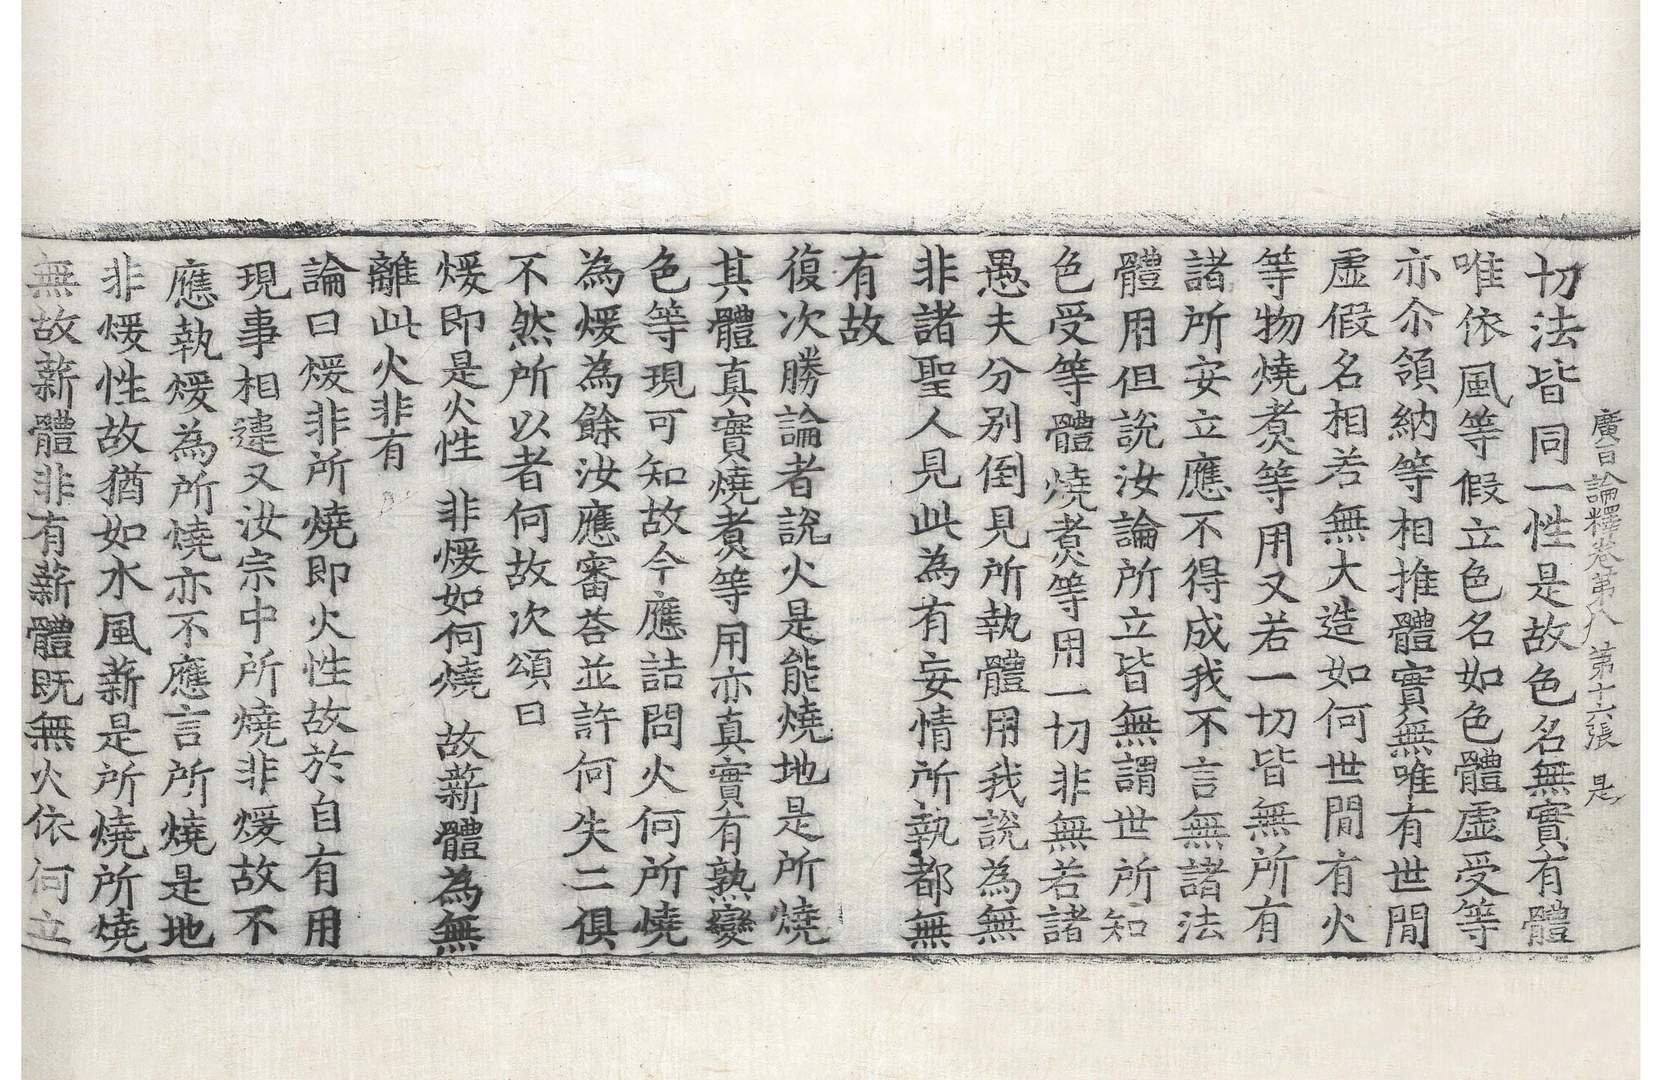 廣百論釋卷第八　第十六張　是
切法皆同一性是故色名無實有體
唯依風等假立色名如色體虛受等
亦尒領納等相推體實無唯有世間
虛假名相若無大造如何世間有火
等物燒煑等用又若一切皆無所有
諸所安立應不得成我不言無諸法
體用但說汝論所立皆無謂世所知
色受等體燒煑等用一切非無若諸
愚夫分别倒見所執體用我說為無
非諸聖人見此為有妄情所執都無
有故
復次勝論者說火是能燒地是所燒
其體真實燒煑等用亦真實有熟變
色等現可知故今應詰問火何所燒
為煖為餘汝應審荅並許何失二俱
不然所以者何故次頌曰
煖即是火性　非煖如何燒　故薪體為無
離此火非有
論曰煖非所燒即火性故於自有用
現事相違又汝宗中所燒非煖故不
應執煖為所燒亦不應言所燒是地
非煖性故猶如水風薪是所燒所燒
無故薪體非有薪體既無火依何立